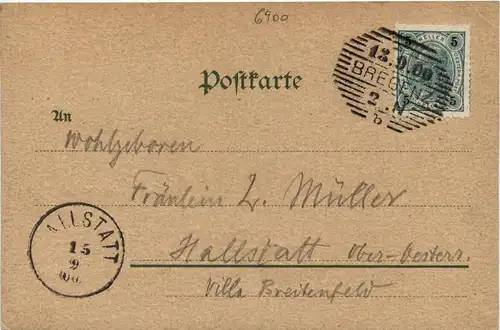 6900
5 HELLER 5
13.9.00
BREGENZ
2.N
b
5 5
Postkarte
An
Wohlgeboren
Fräulein L. Müller
Hallstatt Ober-Oesterr.
Villa Breitenfeld
HALLSTATT
15
9
00